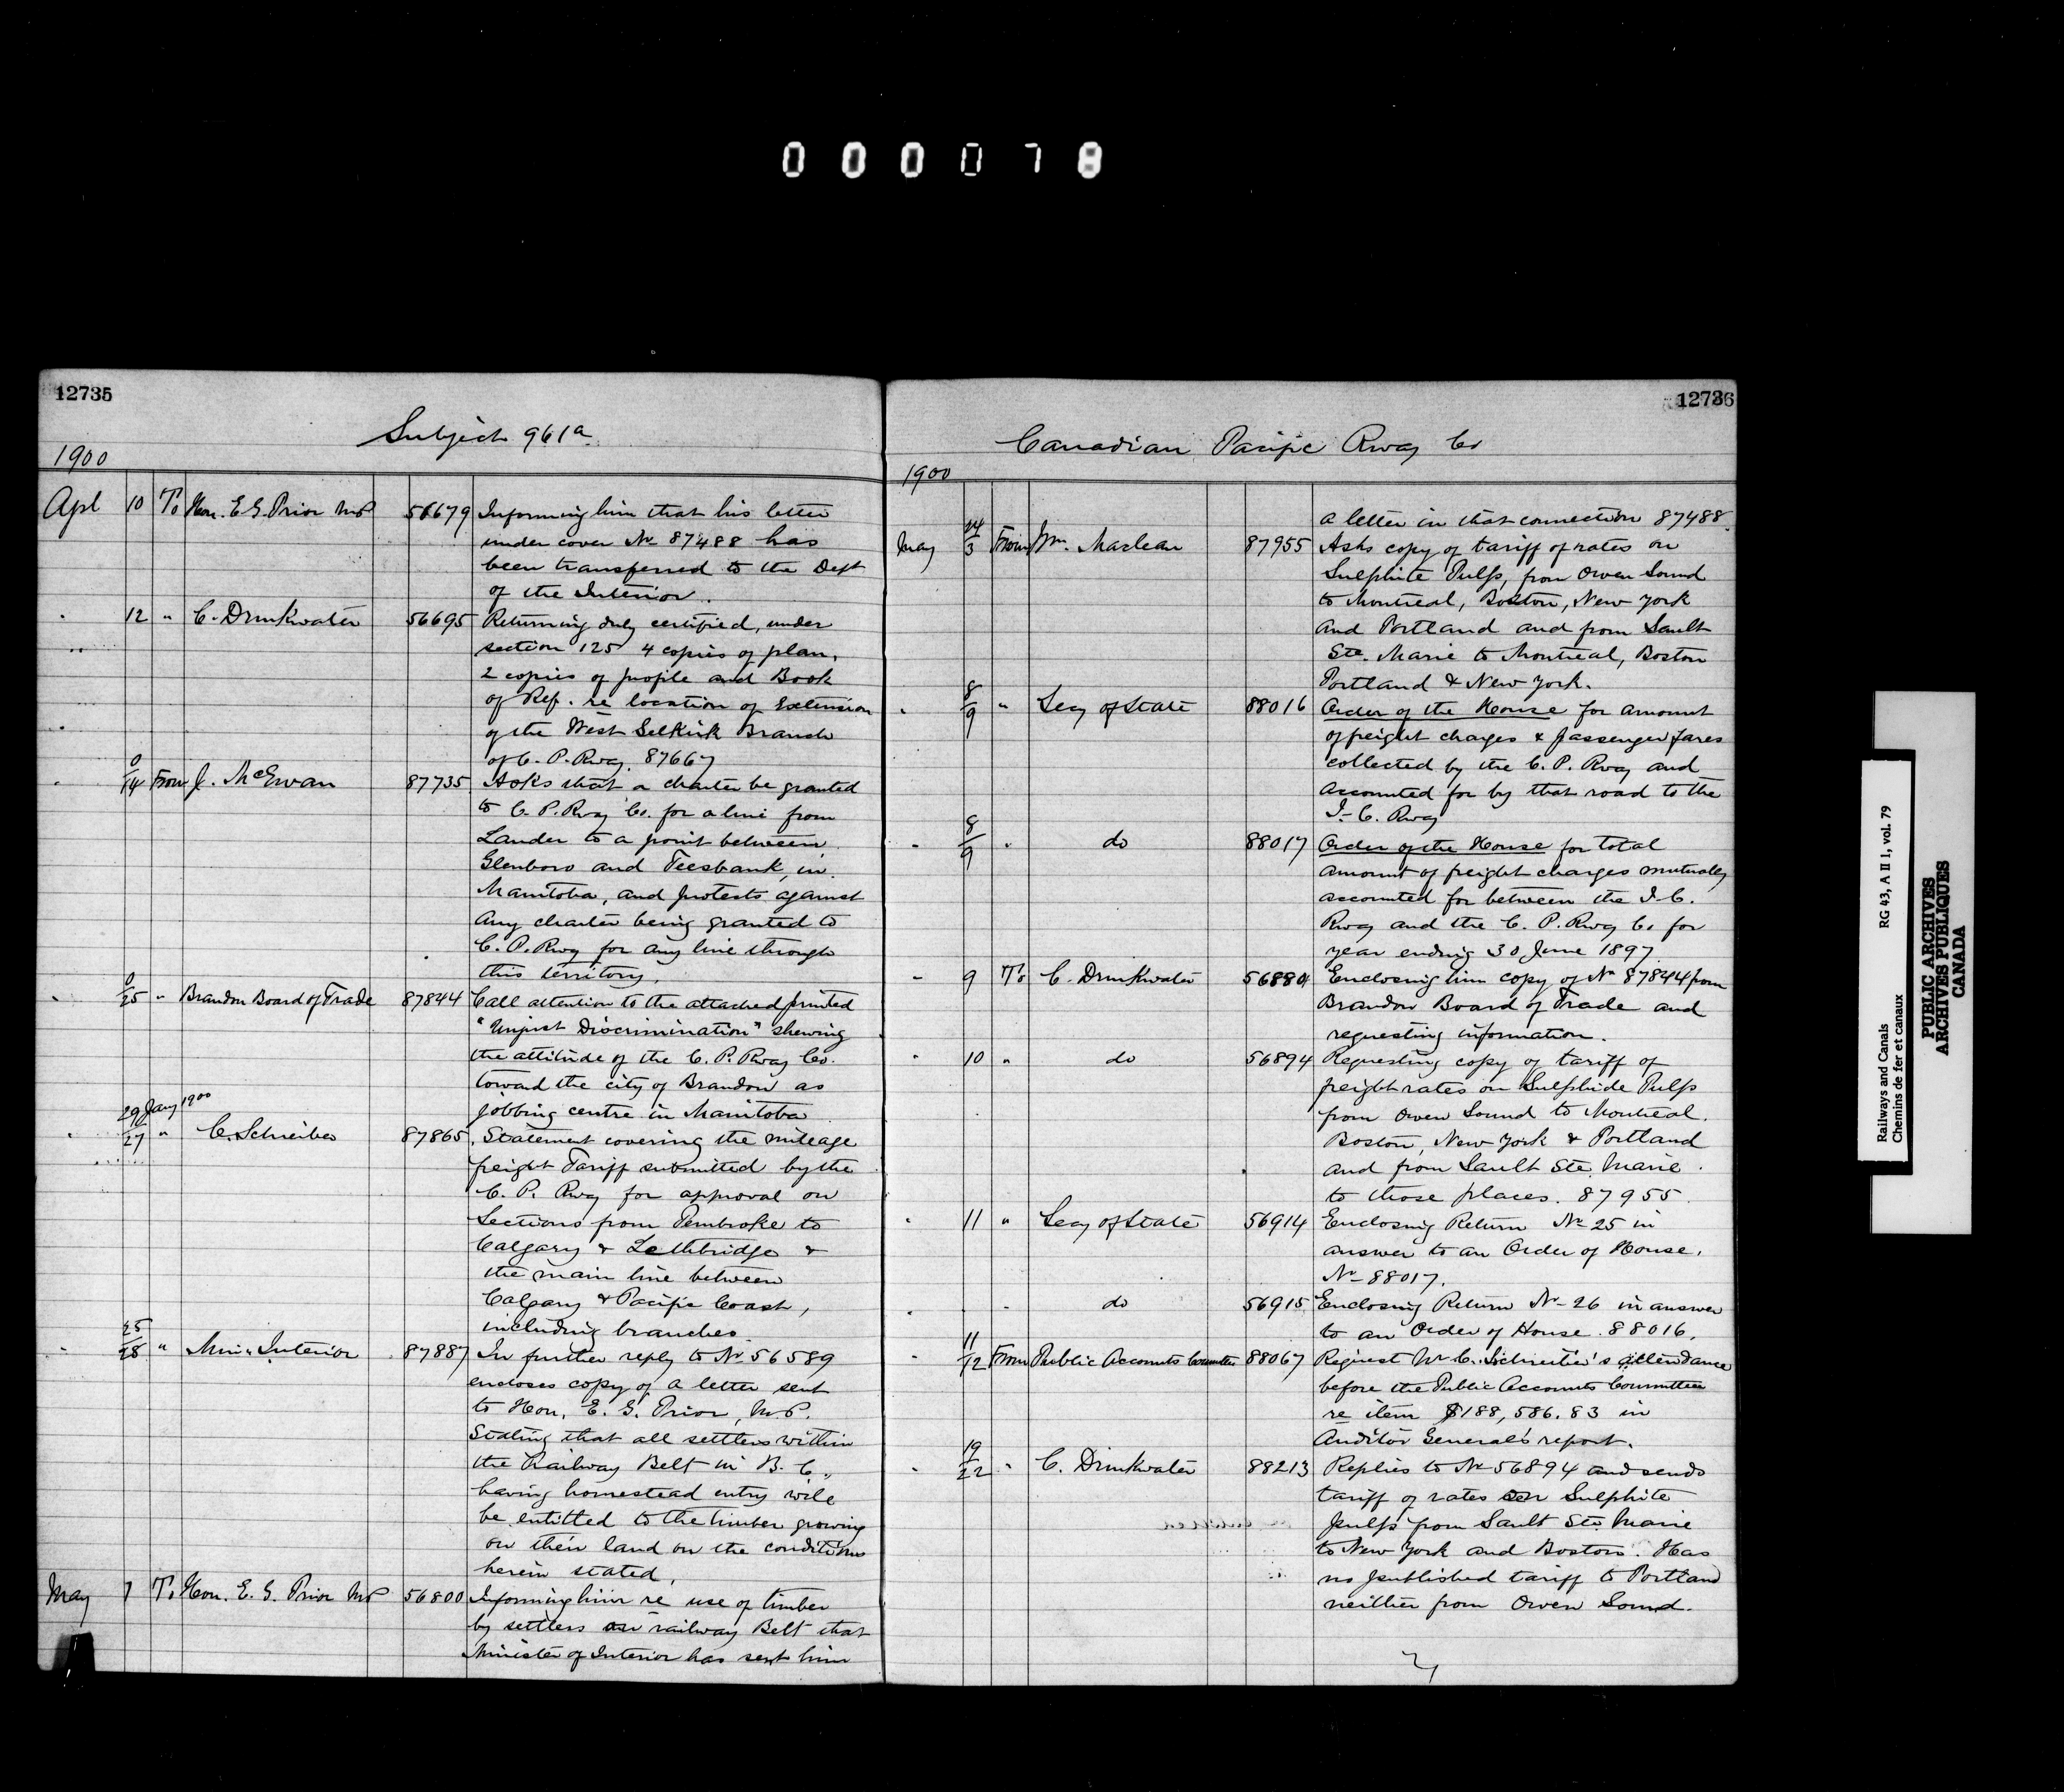 000078
12735
Subject 961a
1900
Apl 10 To Hon. E. G. Prior MP 56679 Informing him that his letter
under cover No 87488 has
been transferred to the Dept
of the Interior.
" 12 " C. Drinkwater 56695 Returning duly certified, under
section 125 4 copies of plan,
2 copies of profile and Book
of Ref. re location of Extension
of the West Selkirk Branch
of C. P. Rway. 87667
" 0/14 From J. McEwan 87735 Asks that a charter be granted
to C. P. Rway Co. for a line from
Lauder to a point between
Glenboro and Treesbank, in
Manitoba, and protests against
any charter being granted to
C. P. Rwy for any line through
this territory.
" 0/25 " Brandon Board of Trade 87844 Call attention to the attached printed
"Unjust Discrimination" shewing
the attitude of the C. P. Rway Co.
toward the city of Brandon as
jobbing centre in Manitoba
29 Jany 1900
" /27 " C. Schreiber 87865 Statement covering the mileage
freight Tariff submitted by the
C. P. Rwy for approval on
Sections from Pembroke to
Calgary & Lethbridge &
the main line between
Calgary & Pacific Coast,
including branches.
" 25/28 " Min. Interior 87887 In further reply to No 56589
encloses copy of a letter sent
to Hon. E. G. Prior, M.P.
Stating that all settlers within
the Railway Belt in B. C.,
having homestead entry will
be entitled to the timber growing
on their land on the conditions
herein stated.
May 7 To Hon. E. G. Prior MP 56800 Informing him re use of timber
by settlers on railway Belt that
Minister of Interior has sent him
12736
Canadian Pacific Rway Co
1900
a letter in that connection 87488.
May 24/3 From Wm. Maclean 87955 Asks copy of tariff of rates on
Sulphite Pulp, from Owen Sound
to Montreal, Boston, New York
and Portland and from Sault
Ste. Marie to Montreal, Boston
Portland & New York.
" 8/9 " Secy of State 88016 Order of the House for amount
of freight charges & passenger fares
collected by the C. P. Rway and
accounted for by that road to the
I. C. Rway
" 8/9 " do 88017 Order of the House for total
amount of freight charges mutually
accounted for between the I. C.
Rway and the C. P. Rwy Co for
year ending 30 June 1897
" 9 To C. Drinkwater 56880 Enclosing him copy of No 87844 from
Brandon Board of Trade and
requesting information.
" 10 " do 56894 Requesting copy of tariff of
freight rates on Sulphide Pulp
from Owen Sound to Montreal.
Boston, New York & Portland
and from Sault Ste. Marie
to those places. 87955.
" 11 " Secy of State 56914 Enclosing Return No 25 in
answer to an Order of House,
No 88017.
" " " do 56915 Enclosing Return No 26 in answer
to an Order of House. 88016.
" 11/12 From Public Accounts Committee 88067 Request Mr C. Schreiber's attendance
before the Public Accounts Committee
re item $188,586.83 in
Auditor General's report.
" 19/22 " C. Drinkwater 88213 Replies to No 56894 and sends
tariff of rates on Sulphite
pulp from Sault Ste. Marie
to New York and Boston. Has
no published tariff to Portland
neither from Owen Sound.
Railways and Canals RG 43, A II 1, vol. 79
Chemins de fer et canaux
PUBLIC ARCHIVES
ARCHIVES PUBLIQUES
CANADA